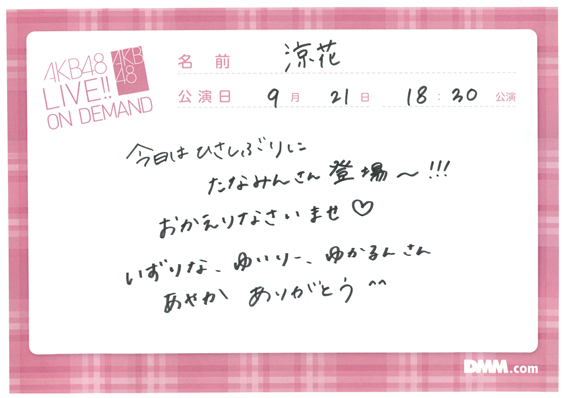 AKB48
LIVE!!
ON DEMAND
AKB
48
名前 涼花
公演日 9月 21日 18:30 公演
今日はひさしぶりに
たなみんさん登場〜!!!
おかえりなさいませ♡
いずりな、ゆいりー、ゆかるんさん
あやか ありがとう ^^
DMM.com